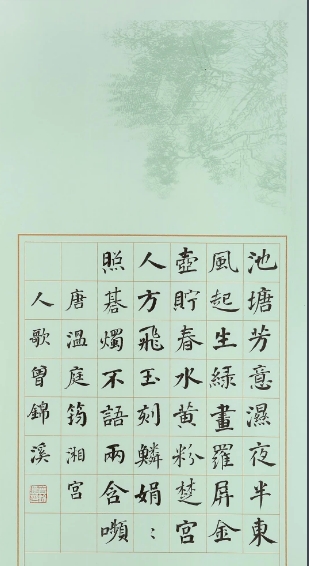 池塘芳意濕夜半東
風起生綠畫羅屏金
壺貯春水黃粉楚宮
人方飛玉刻鱗娟:
照棊燭不語兩含嚬
唐溫庭筠湘宮
人歌曾錦溪